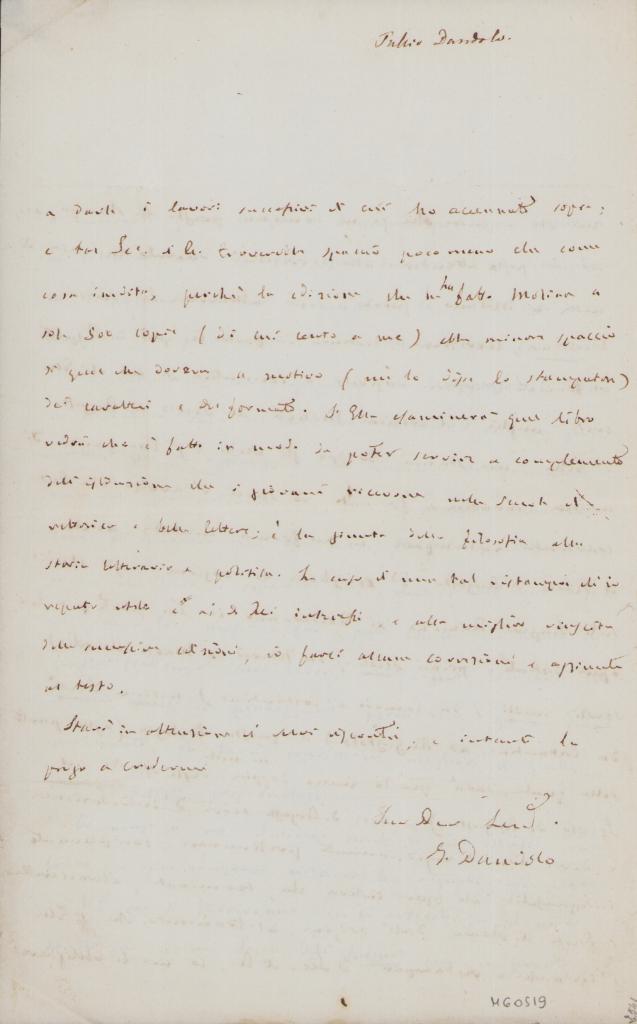 Tullio Dandolo.
a darle i lavori successivi di cui ho accennato sopra;
e tal troveravvi spaccio poco meno che come
cosa inedita, perchè la edizione che n'ha fatto Molina a
sole 800 copie (di cui cento a me) ebbe minore spaccio
di quel che doveva a motivo (mi lo disse lo stampatore)
dei caratteri e del formato. Se Ella esaminerà quel libro
vedrà che è fatto in modo da poter servire a complemento
dell'istruzione che i giovani ricevono nelle Scuole di
rettorica e belle lettere; è la giunta della filosofia alla
storia letteraria e politica. In caso di una tal ristampa, ch'io
reputo utile ai di Lei interessi, e alla miglior riuscita
della successive edizioni, io farei alcune correzioni e aggiunte
al testo.
Starò in attenzione di suoi riscontri, e intanto la
prego a credermi
Suo Dev. Serv.
T. Dandolo
MG0519